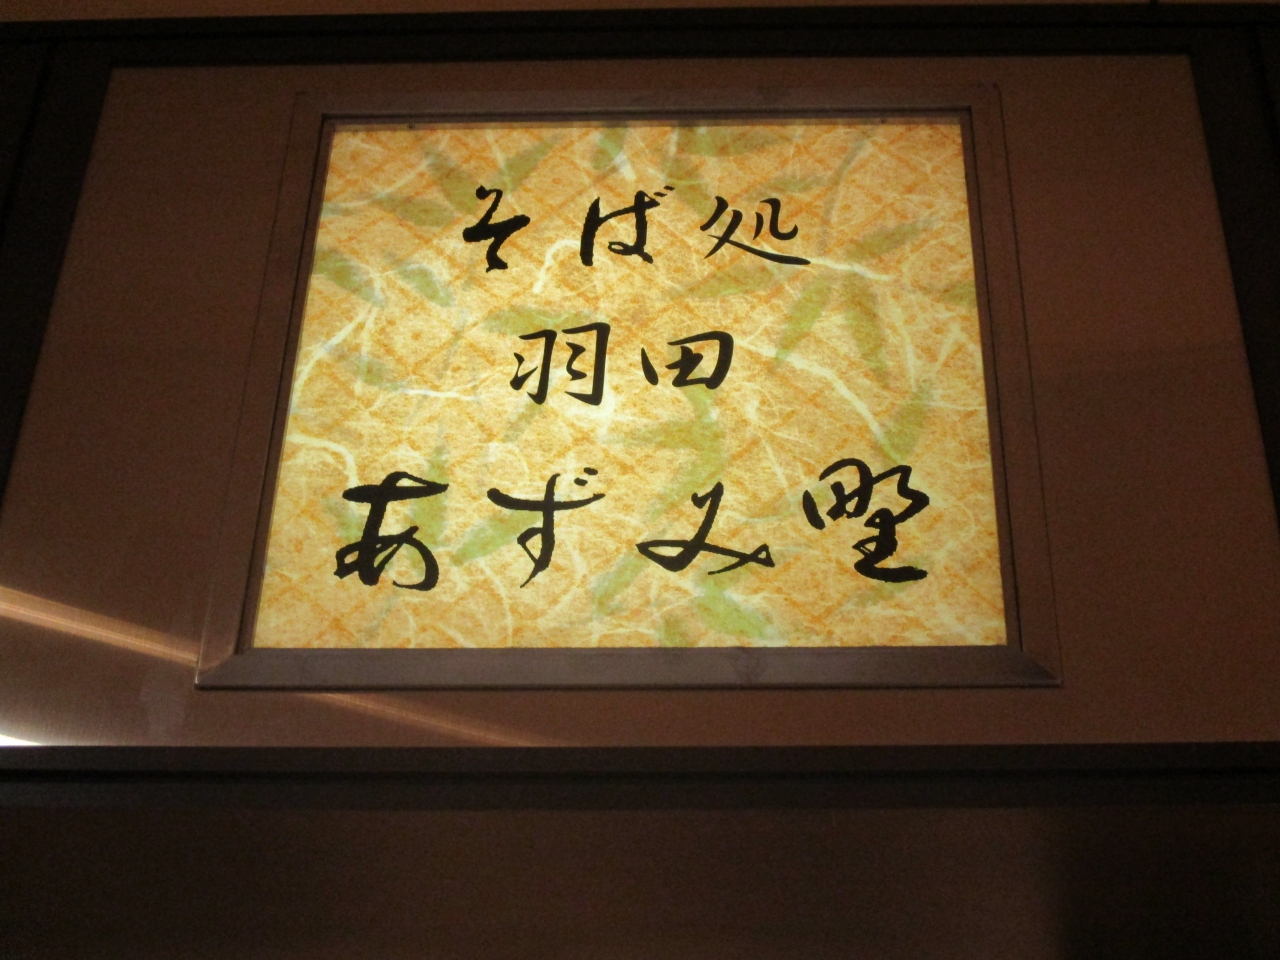 そば処
羽田
あずみ野